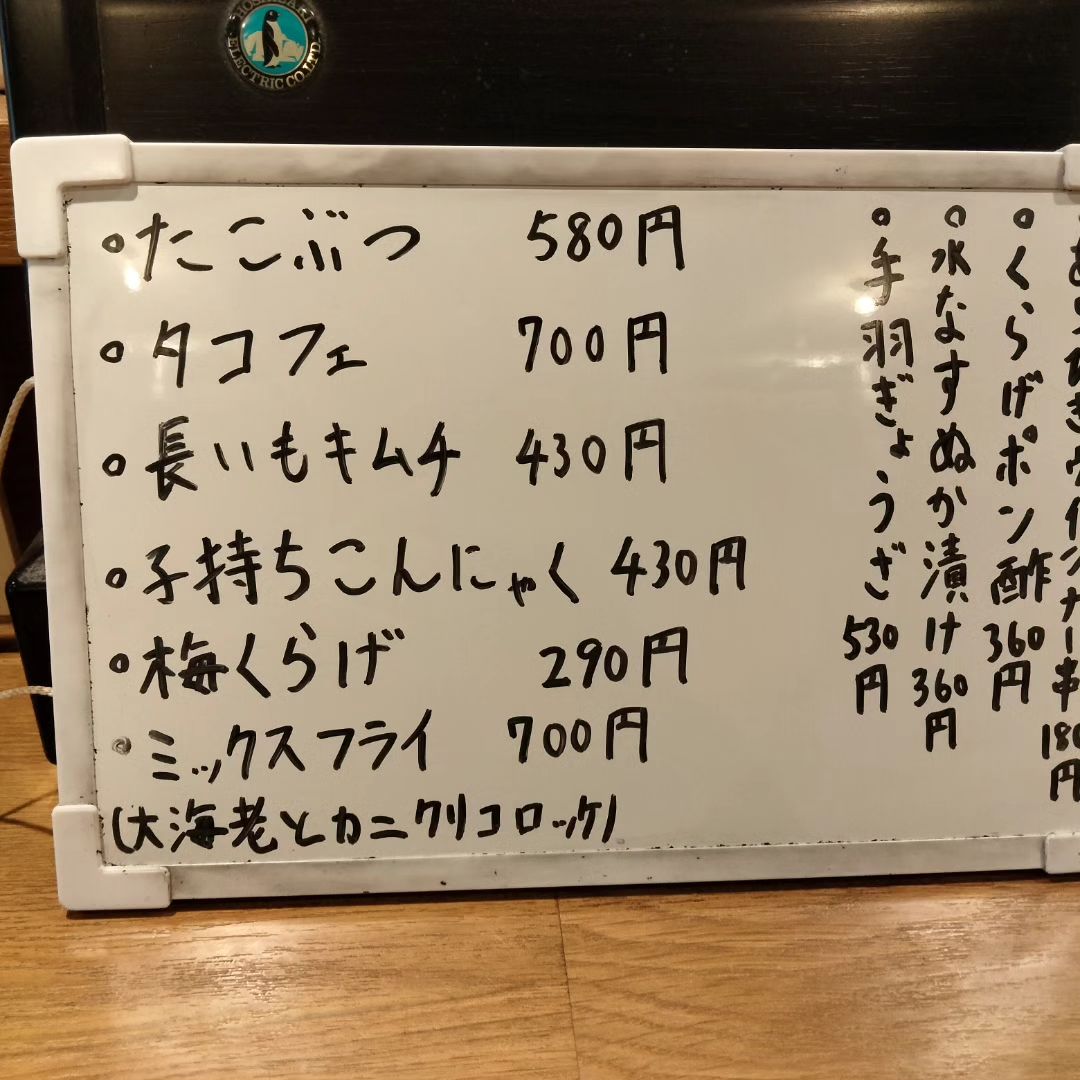 HOSHIZAKI
ELECTRIC CO.LTD.
たこぶつ 580円
タコフェ 700円
長いもキムチ 430円
子持ちこんにゃく 430円
梅くらげ 290円
ミックスフライ 700円
(大海老とカニクリコロッケ)
くらげポン酢 360円
水なすぬか漬け 360円
手羽ぎょうざ 530円
ウインナー串 180円